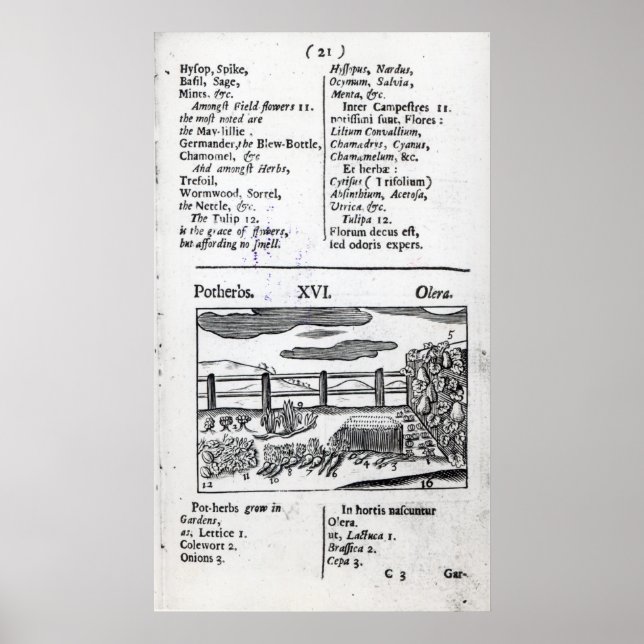 ( 21 )
Hyſop, Spike,
Baſil, Sage,
Mints, &c.
Amongſt Field flowers 11.
the moſt noted are
the May-lillie,
Germander, the Blew-Bottle,
Chamomel, &c
And amongſt Herbs,
Trefoil,
Wormwood, Sorrel,
the Nettle, &c.
The Tulip 12.
is the grace of flowers,
but affording no ſmell.
Hyſſopus, Nardus,
Ocymum, Salvia,
Menta, &c.
Inter Campeſtres 11.
notiſſimi ſunt, Flores :
Lilium Convallium,
Chamædrys, Cyanus,
Chamæmelum, &c.
Et herbæ :
Cytiſus ( Trifolium)
Abſinthium, Acetoſa,
Urtica, &c.
Tulipa 12.
Florum decus eſt,
ſed odoris expers.
Potherbs. XVI. Olera.
5
9
12 11 10 8 7 6 4 3 16
Pot-herbs grow in
Gardens,
as, Lettice 1.
Colewort 2.
Onions 3.
In hortis naſcuntur
Olera.
ut, Lactuca 1.
Braſſica 2.
Cepa 3.
C 3 Gar-